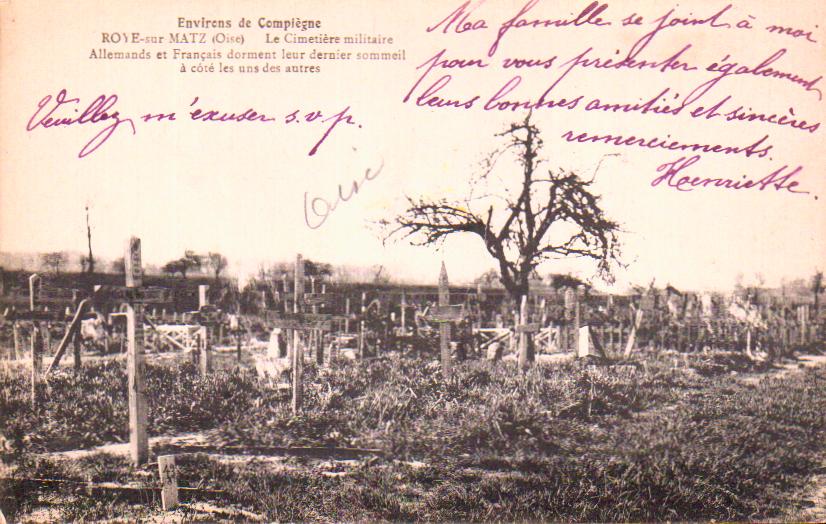 Environs de Compiègne
ROYE-sur MATZ (Oise) Le Cimetière militaire
Allemands et Français dorment leur dernier sommeil
à côté les uns des autres
Ma famille se joint à moi
pour vous présenter également
leurs bonnes amitiés et sincères
remerciements.
Henriette.
Veuillez m'exuser s.v.p.
Oise